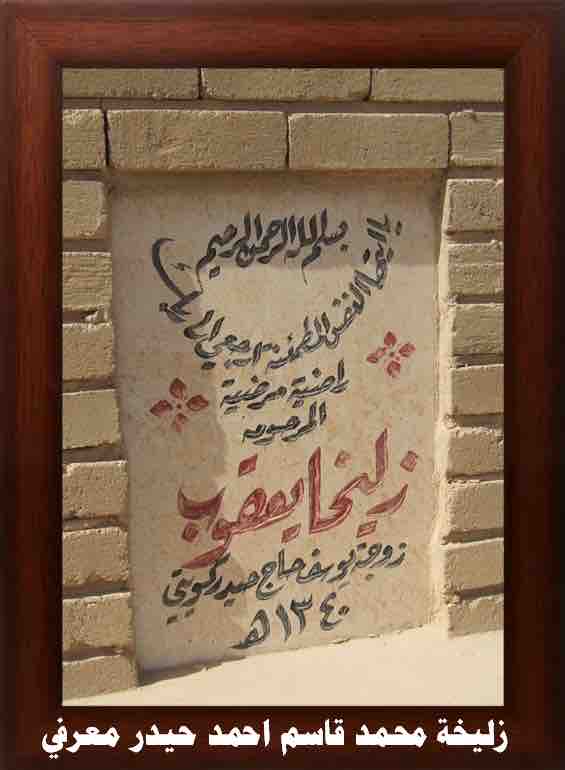 بسم الله الرحمن الرحيم
يا ايتها النفس المطمئنة ارجعي الى ربك
راضية مرضية
المرحومه
زليخا يعقوب
زوجة يوسف حاج حيدر كويتي
١٣٤٠ هـ
زليخة محمد قاسم احمد حيدر معرفي